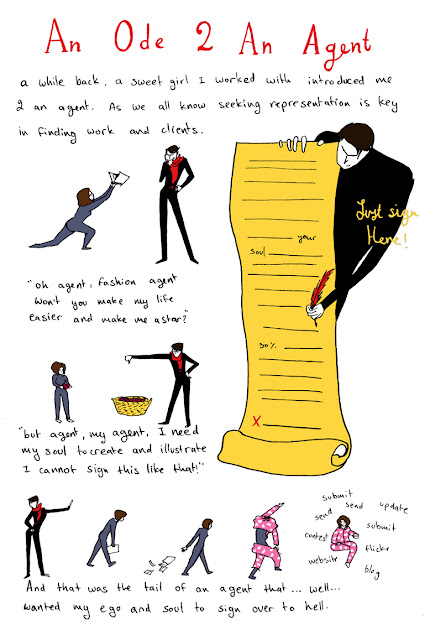 An Ode 2 An Agent
a while back, a sweet girl I worked with introduced me
2 an agent. As we all know seeking representation is key
in finding work and clients.
your
soul
Just sign
Here!
"oh agent, fashion agent
won't you make my life
easier and make me a star?"
50%
X
"but agent, my agent, I need
my soul to create and illustrate
I cannot sign this like that!"
submit
send send update
submit
contest
flickr
website
blog
And that was the tail of an agent that... well...
wanted my ego and soul to sign over to hell.